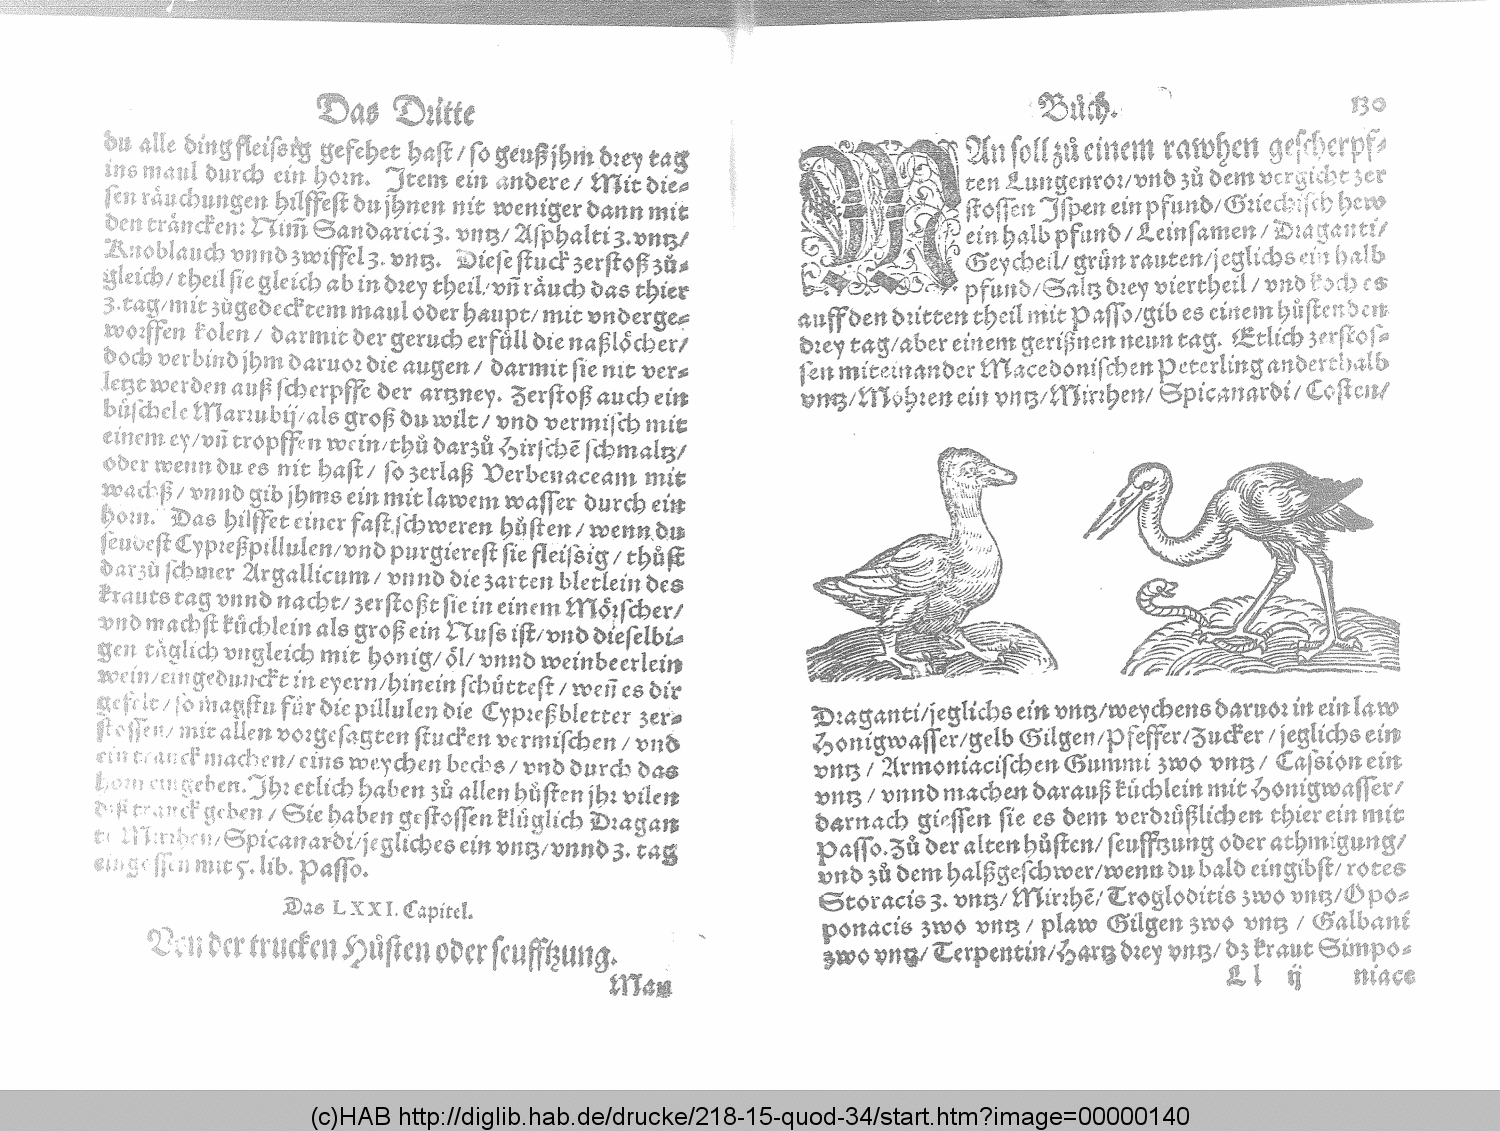 Das Dritte
du alle ding fleissig gesehet hast / so geuß jhm drey tag
ins maul durch ein horn. Item ein andere / Mit die⸗
sen räuchungen hilffest du jhnen nit weniger dann mit
den träncken: Nim̃ Sandarici 3. vntz / Asphalti 3. vntz /
Knoblauch vnnd zwiffel 3. vntz. Diese stuck zerstoß zů⸗
gleich / theil sie gleich ab in drey theil / vñ räuch das thier
3. tag / mit zůgedecktem maul oder haupt / mit vnderge⸗
worffen kolen / darmit der geruch erfüll die naßlöcher /
doch verbind jhm daruor die augen / darmit sie nit ver⸗
letzt werden auß scherpffe der artzney. Zerstoß auch ein
büschele Marrubij / als groß du wilt / vnd vermisch mit
einem ey / vñ tropffen wein / thů darzů Hirschẽ schmaltz /
oder wenn du es nit hast / so zerlaß Verbenaceam mit
wachß / vnnd gib jhms ein mit lawem wasser durch ein
horn. Das hilffet einer fast schweren hůsten / wenn du
seudest Cypreßpillulen / vnd purgierest sie fleissig / thůst
darzů schmer Argallicum / vnnd die zarten bletlein des
krauts tag vnnd nacht / zerstoßt sie in einem Mörscher /
vnd machst küchlein als groß ein Nuss ist / vnd dieselbi⸗
gen täglich vngleich mit honig / öl / vnnd weinbeerlein
wein / eingedunckt in eyern / hinein schüttest / weñ es dir
gefelt / so magstu für die pillulen die Cypreßbletter zer⸗
stossen / mit allen vorgesagten stucken vermischen / vnd
ein tranck machen / eins weychen bechs / vnd durch das
horn eingeben. Ihr etlich haben zů allen hůsten jhr vilen
diß tranck geben / Sie haben gestossen klüglich Dragan
ti Mirrhen / Spicanardi / jegliches ein vntz / vnnd 3. tag
eingessen mit 5. lib. Passo.
Das LXXI. Capitel.
Von der trucken Hůsten oder seufftzung.
Man
Bůch. 130
MAn soll zů einem rawhen gescherpf⸗
ten Lungenror / vnd zů dem vergicht zer
stossen Ispen ein pfund / Griechisch hew
ein halb pfund / Leinsamen / Draganti /
Geycheil / grün rauten / jeglichs ein halb
pfund / Saltz drey viertheil / vnd koch es
auff den dritten theil mit Passo / gib es einem hůstenden
drey tag / aber einem gerißnen neun tag. Etlich zerstos⸗
sen miteinander Macedonischen Peterling anderthalb
vntz / Mohren ein vntz / Mirrhen / Spicanardi / Costen /
Draganti / jeglichs ein vntz / weychens daruor in ein law
Honigwasser / gelb Gilgen / Pfeffer / Zucker / jeglichs ein
vntz / Armoniacischen Gummi zwo vntz / Cassion ein
vntz / vnnd machen darauß küchlein mit Honigwasser /
darnach giessen sie es dem verdrüßlichen thier ein mit
Passo. Zů der alten hůsten / seufftzung oder athmigung /
vnd zů dem halßgeschwer / wenn du bald eingibst / rotes
Storacis 3. vntz / Mirrhẽ / Trogloditis zwo vntz / Opo⸗
ponacis zwo vntz / plaw Gilgen zwo vntz / Galbani
zwo vntz / Terpentin / Hartz drey vntz / dz kraut Simpo⸗
Ll ij niace
(c)HAB http://diglib.hab.de/drucke/218-15-quod-34/start.htm?image=00000140